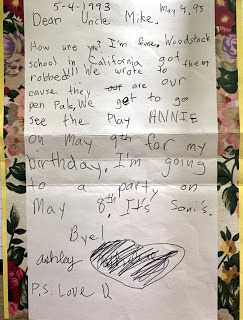 5-4-1993
May 4, 93
Dear Uncle Mike,
How are you? I'm fine. Woodstock
school in California got them
robbed!!! We wrote to
cause they are our
pen pals, We got to go
see the Play ANNIE
on May 9th for my
birthday. I'm going
to a party on
May 8th. It's Soni's.
Bye!
ashley
P.S. Love U